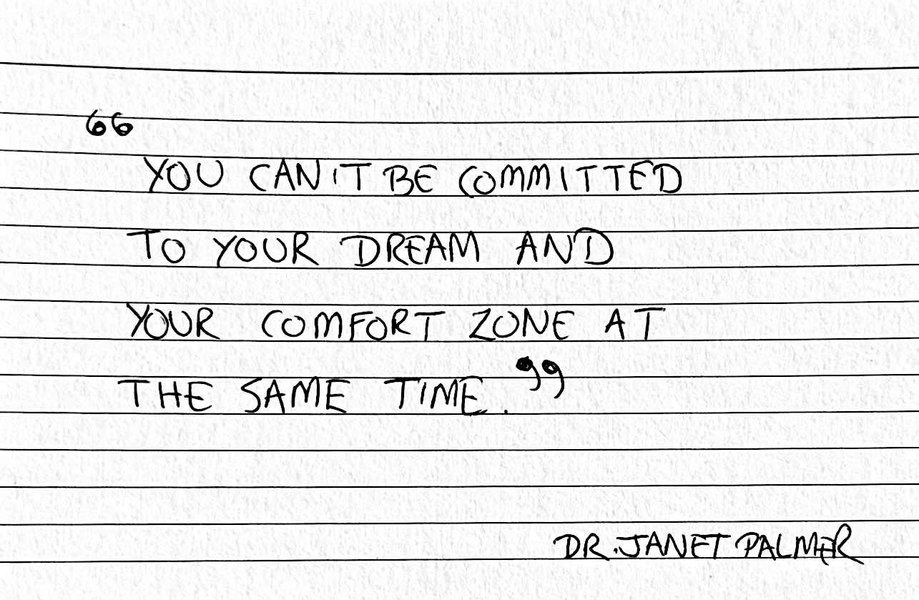 “
YOU CAN'T BE COMMITTED
TO YOUR DREAM AND
YOUR COMFORT ZONE AT
THE SAME TIME.”
DR. JANET PALMER